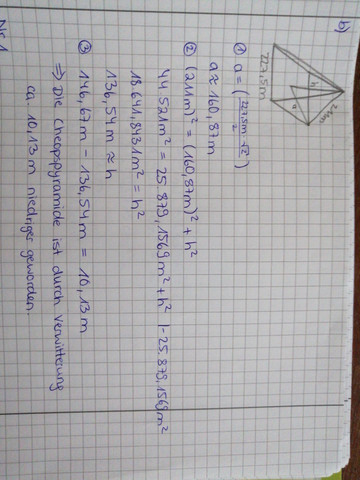 b)
227,5m
h
a
211m
① a = (227,5m/2 · √2)
a ≈ 160,87m
② (211m)² = (160,87m)² + h²
44 521m² = 25.879,1569m² + h² |-25.879,1569m²
18 641,8431m² = h²
136,54m ≈ h
③ 146,67m - 136,54m = 10,13m
⇒ Die Cheopspyramide ist durch Verwitterung
ca. 10,13m niedriger geworden.
Nr. 1